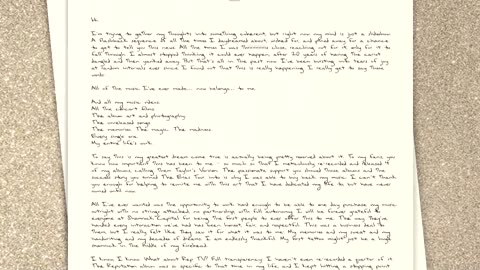 Hi.
I'm trying to gather my thoughts into something coherent, but right now my mind is just a slideshow.
A flashback sequence of all the times I daydreamed about, wished for, and pined away for a chance
to get to tell you this news. All the times I was thiiiiiiiis close, reaching out for it, only for it to
fall through. I almost stopped thinking it could ever happen, after 20 years of having the carrot
dangled and then yanked away. But that's all in the past now. I've been bursting into tears of joy
at random intervals ever since I found out that this is really happening. I really get to say these
words:
All of the music I've ever made... now belongs... to me.
And all my music videos.
All the concert films.
The album art and photography.
The unreleased songs.
The memories. The magic. The madness.
Every single era.
My entire life's work.
To say this is my greatest dream come true is actually being pretty reserved about it. To my fans, you
know how important this has been to me - so much so that I meticulously re-recorded and released
4 of my albums, calling them Taylor's Version. The passionate support you showed those albums and the
success story you turned The Eras Tour into is why I was able to buy back my music. I can't thank
you enough for helping to reunite me with this art that I have dedicated my life to, but have never
owned until now.
All I've ever wanted was the opportunity to work hard enough to be able to one day purchase my music
outright with no strings attached, no partnership, with full autonomy. I will be forever grateful to
everyone at Shamrock Capital for being the first people to ever offer this to me. The way they've
handled every interaction we've had has been honest, fair, and respectful. This was a business deal to
them, but I really felt like they saw it for what it was to me: My memories and my sweat and my
handwriting and my decades of dreams. I am endlessly thankful. My first tattoo might just be a huge
shamrock in the middle of my forehead.
I know, I know. What about Rep TV? Full transparency: I haven't even re-recorded a quarter of it.
The Reputation album was so specific to that time in my life, and I kept hitting a stopping point